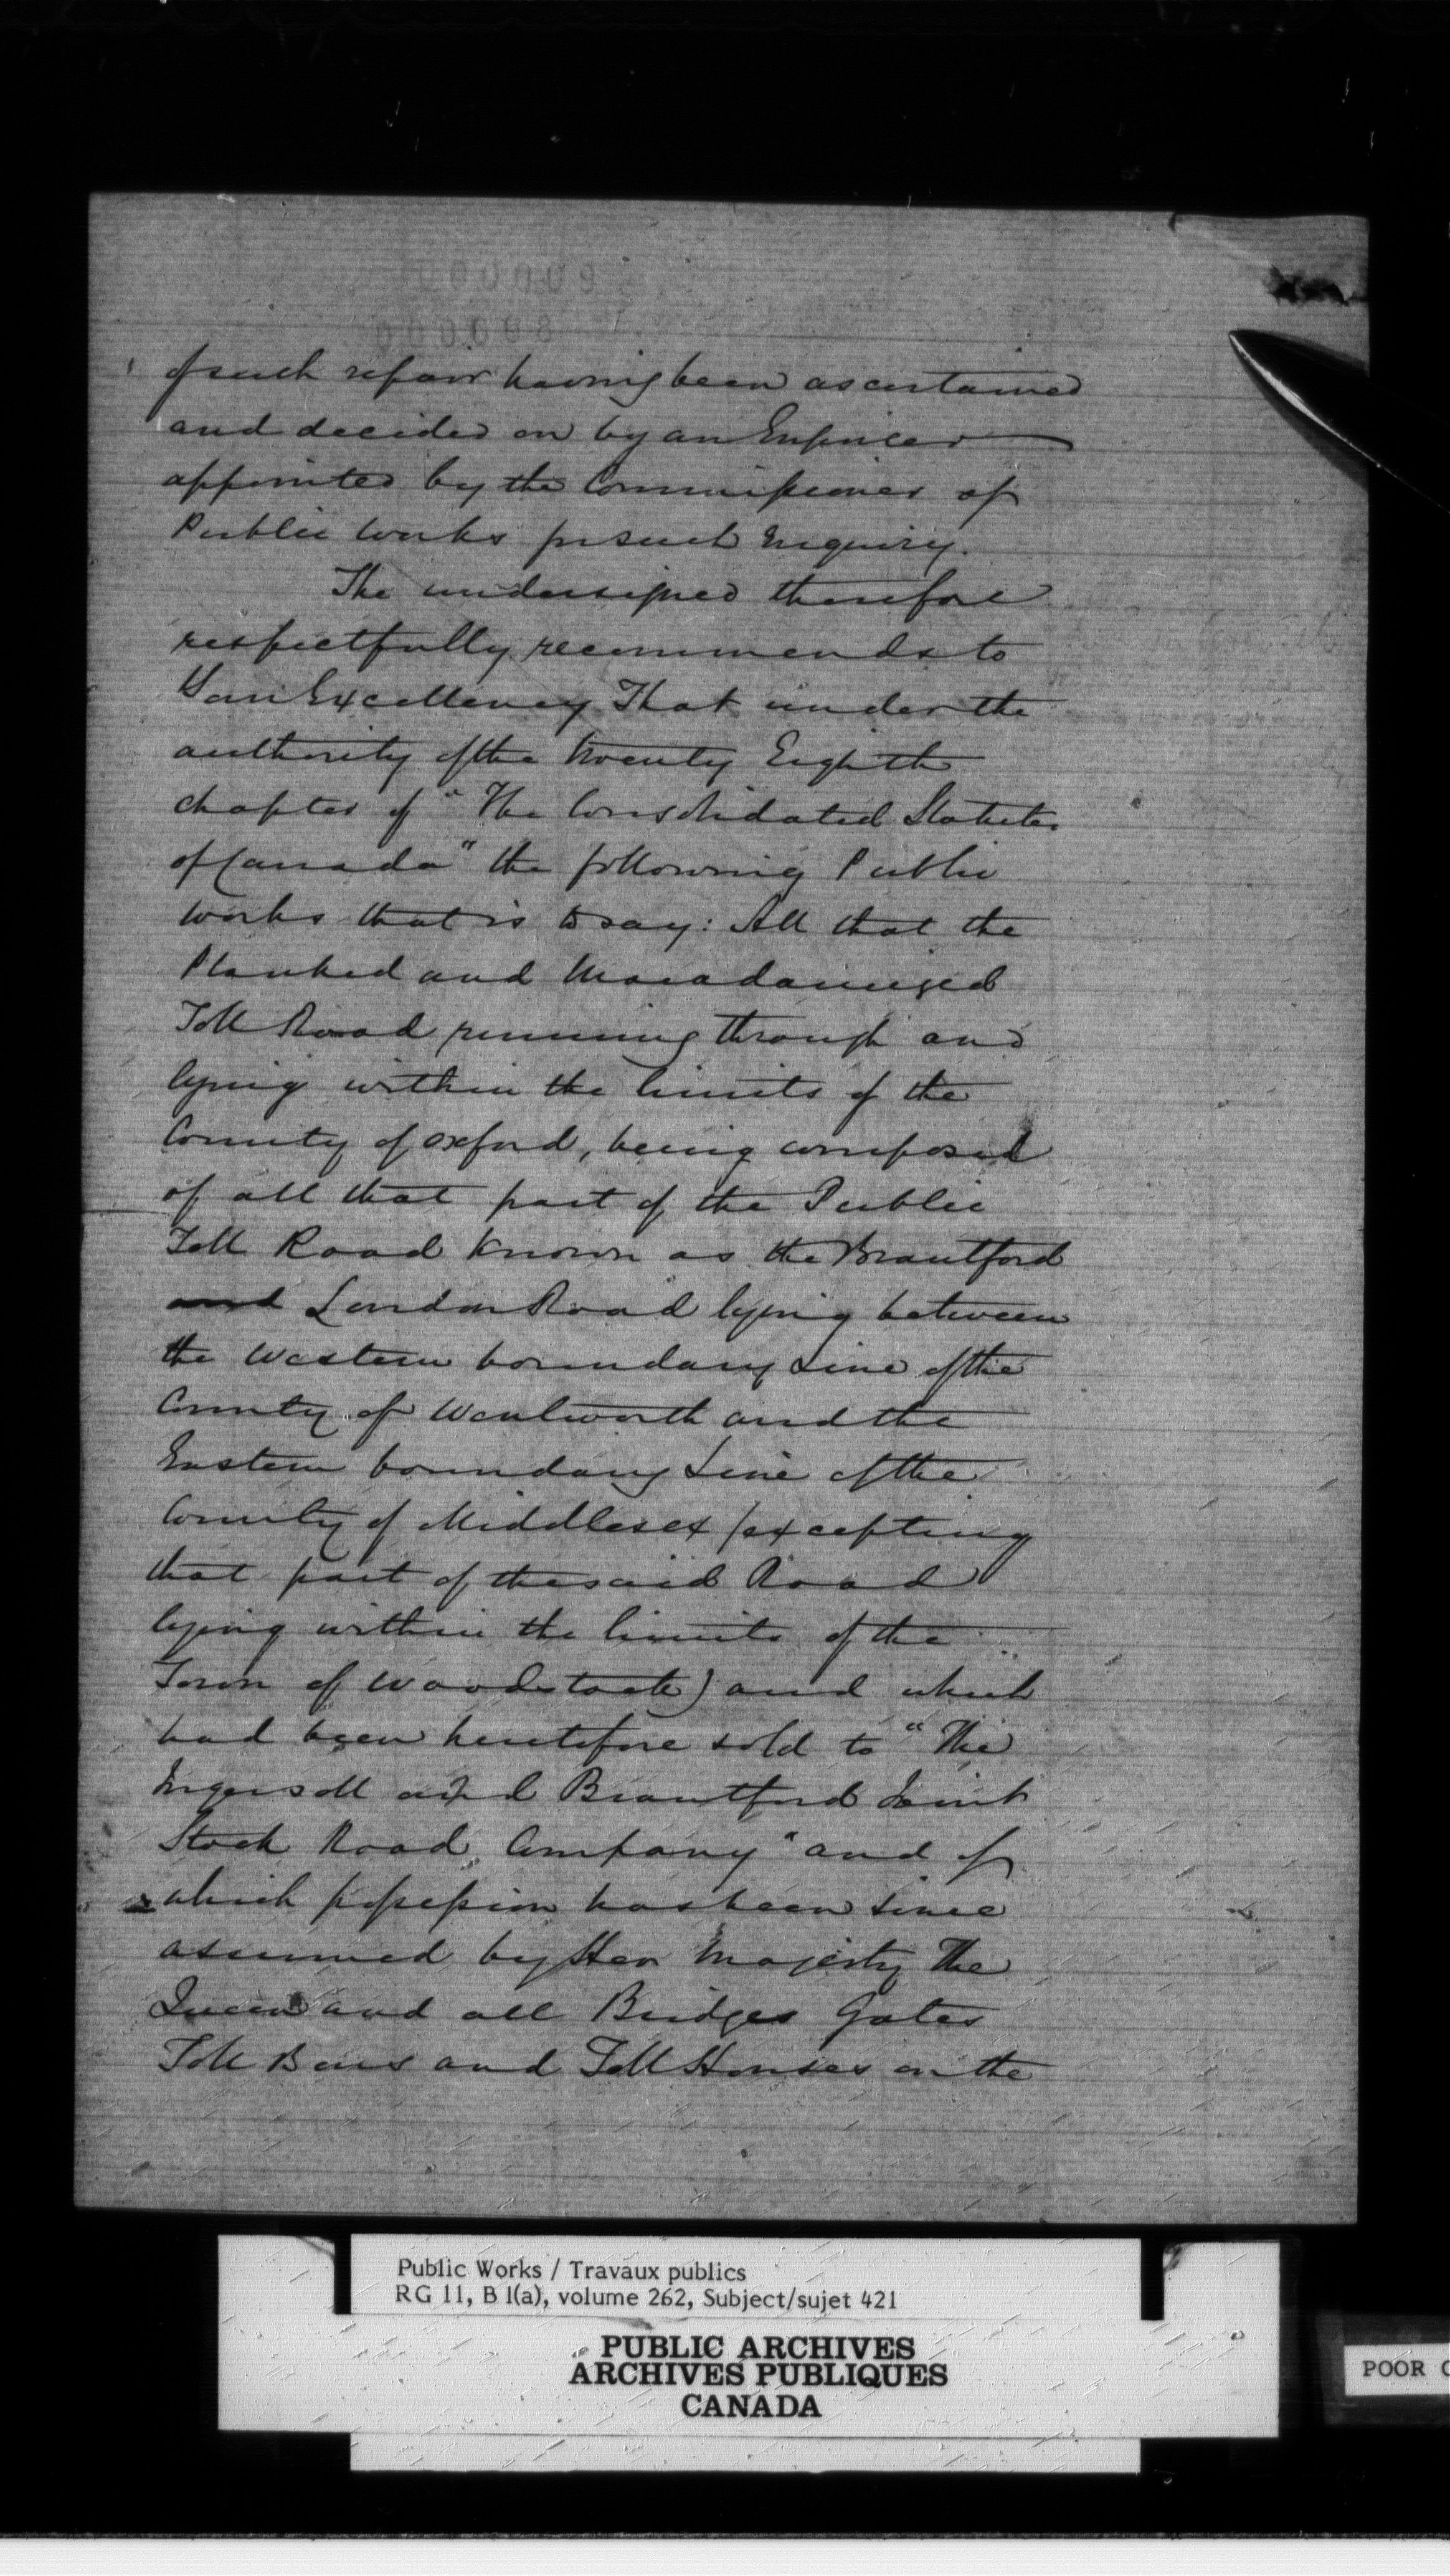 000009
000008
of such repair having been ascertained
and decided on by an Engineer
appointed by the Commissioner of
Public Works for such Enquiry.
The undersigned therefore
respectfully recommends to
Your Excellency That under the
authority of the Twenty Eighth
chapter of "The Consolidated Statutes
of Canada" the following Public
Works that is to say: All that the
Planked and Macadamized
Toll Road running through and
lying within the limits of the
County of Oxford, being composed
of all that part of the Public
Toll Road known as the Brantford
and London Road lying between
the Western boundary Line of the
County of Wentworth and the
Eastern boundary Line of the
County of Middlesex (excepting
that part of the said Road
lying within the limits of the
Town of Woodstock) and which
had been heretofore sold to "The
Ingersoll and Brantford Joint
Stock Road Company" and of
which possession has been since
assumed by Her Majesty The
Queen and all Bridges Gates
Toll Bars and Toll Houses on the
Public Works / Travaux publics
RG 11, B 1(a), volume 262, Subject/sujet 421
PUBLIC ARCHIVES
ARCHIVES PUBLIQUES
CANADA
POOR